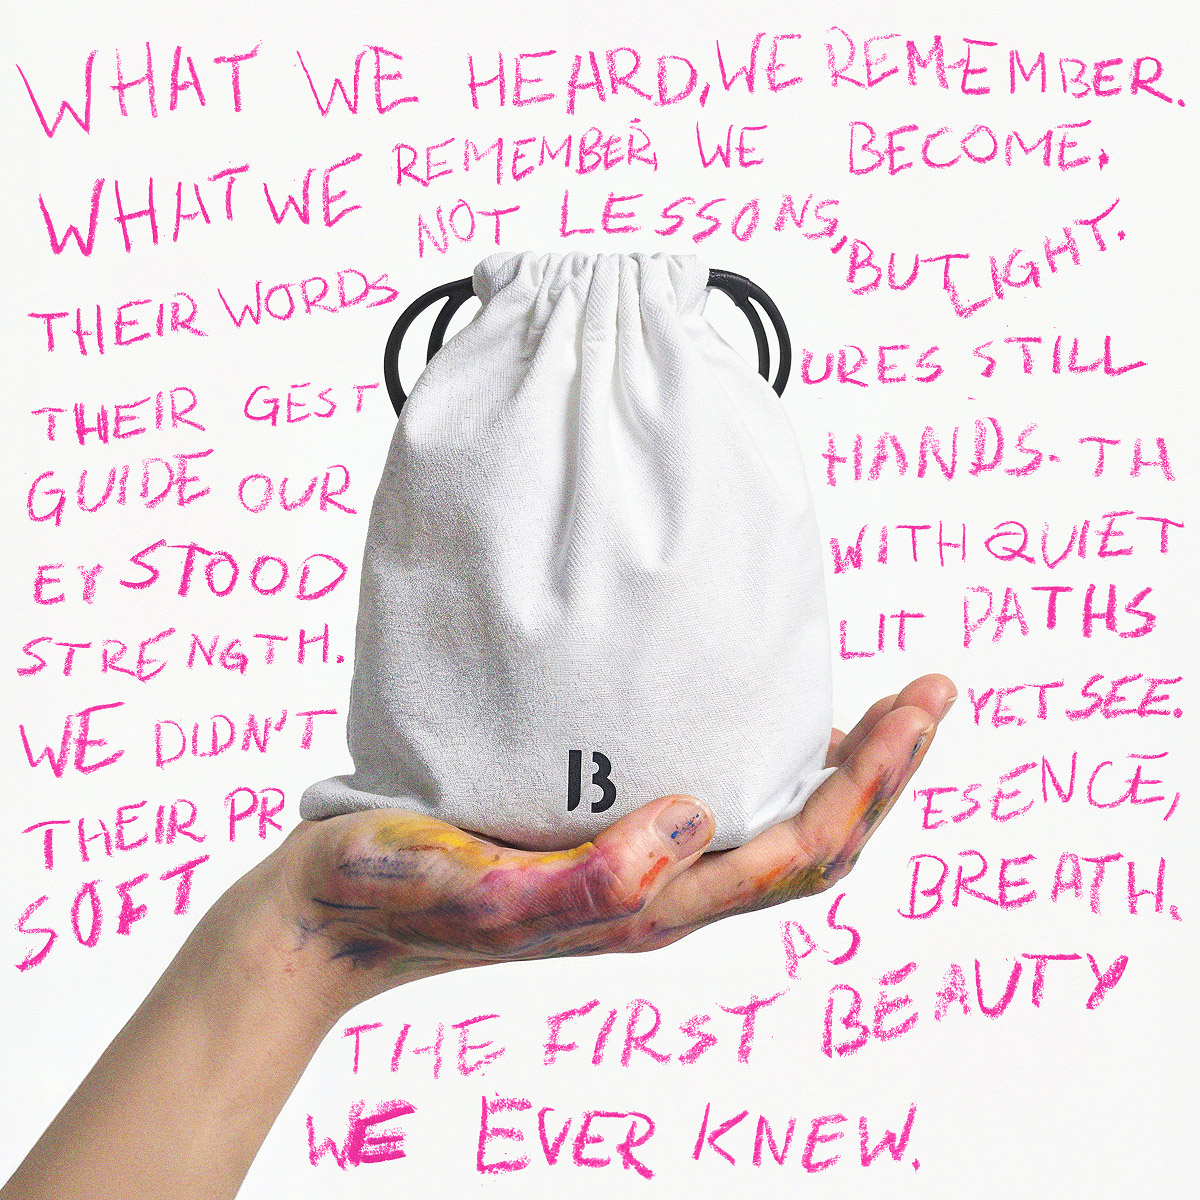 WHAT WE HEARD, WE REMEMBER.
WHAT WE REMEMBER, WE BECOME,
NOT LESSONS, BUT LIGHT.
THEIR WORDS
THEIR GEST URES STILL
GUIDE OUR HANDS. TH
EY STOOD WITH QUIET
STRENGTH. LIT PATHS
WE DIDN'T YET SEE.
THEIR PR ESENCE,
SOFT AS BREATH.
THE FIRST BEAUTY
WE EVER KNEW.
B